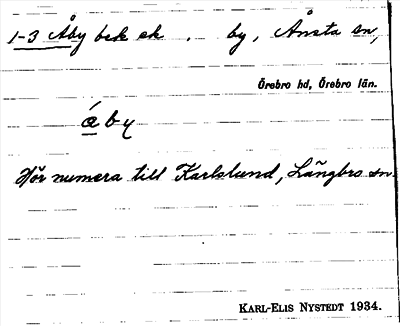 1-3 Åby bek ek. by, Ånsta sn,
Örebro hd, Örebro län.
áby
Hör numera till Karlslund, Längbro sn.
KARL-ELIS NYSTEDT 1934.